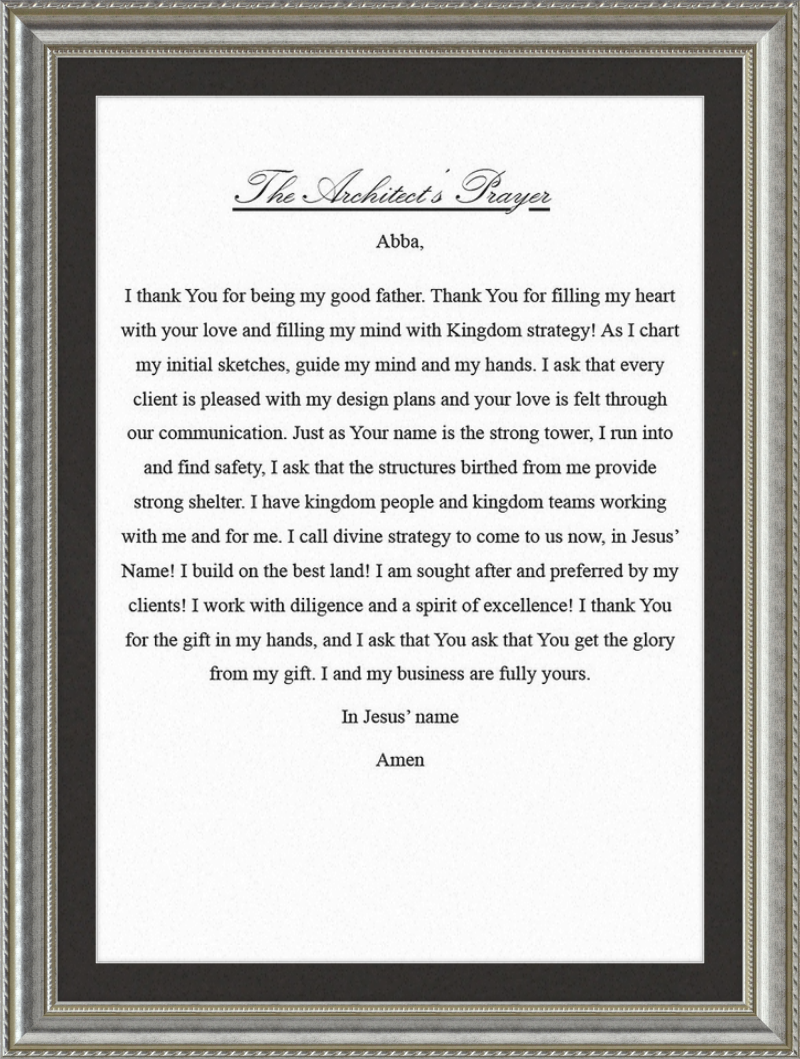 The Architect's Prayer
Abba,
I thank You for being my good father. Thank You for filling my heart
with your love and filling my mind with Kingdom strategy! As I chart
my initial sketches, guide my mind and my hands. I ask that every
client is pleased with my design plans and your love is felt through
our communication. Just as Your name is the strong tower, I run into
and find safety, I ask that the structures birthed from me provide
strong shelter. I have kingdom people and kingdom teams working
with me and for me. I call divine strategy to come to us now, in Jesus’
Name! I build on the best land! I am sought after and preferred by my
clients! I work with diligence and a spirit of excellence! I thank You
for the gift in my hands, and I ask that You ask that You get the glory
from my gift. I and my business are fully yours.
In Jesus’ name
Amen